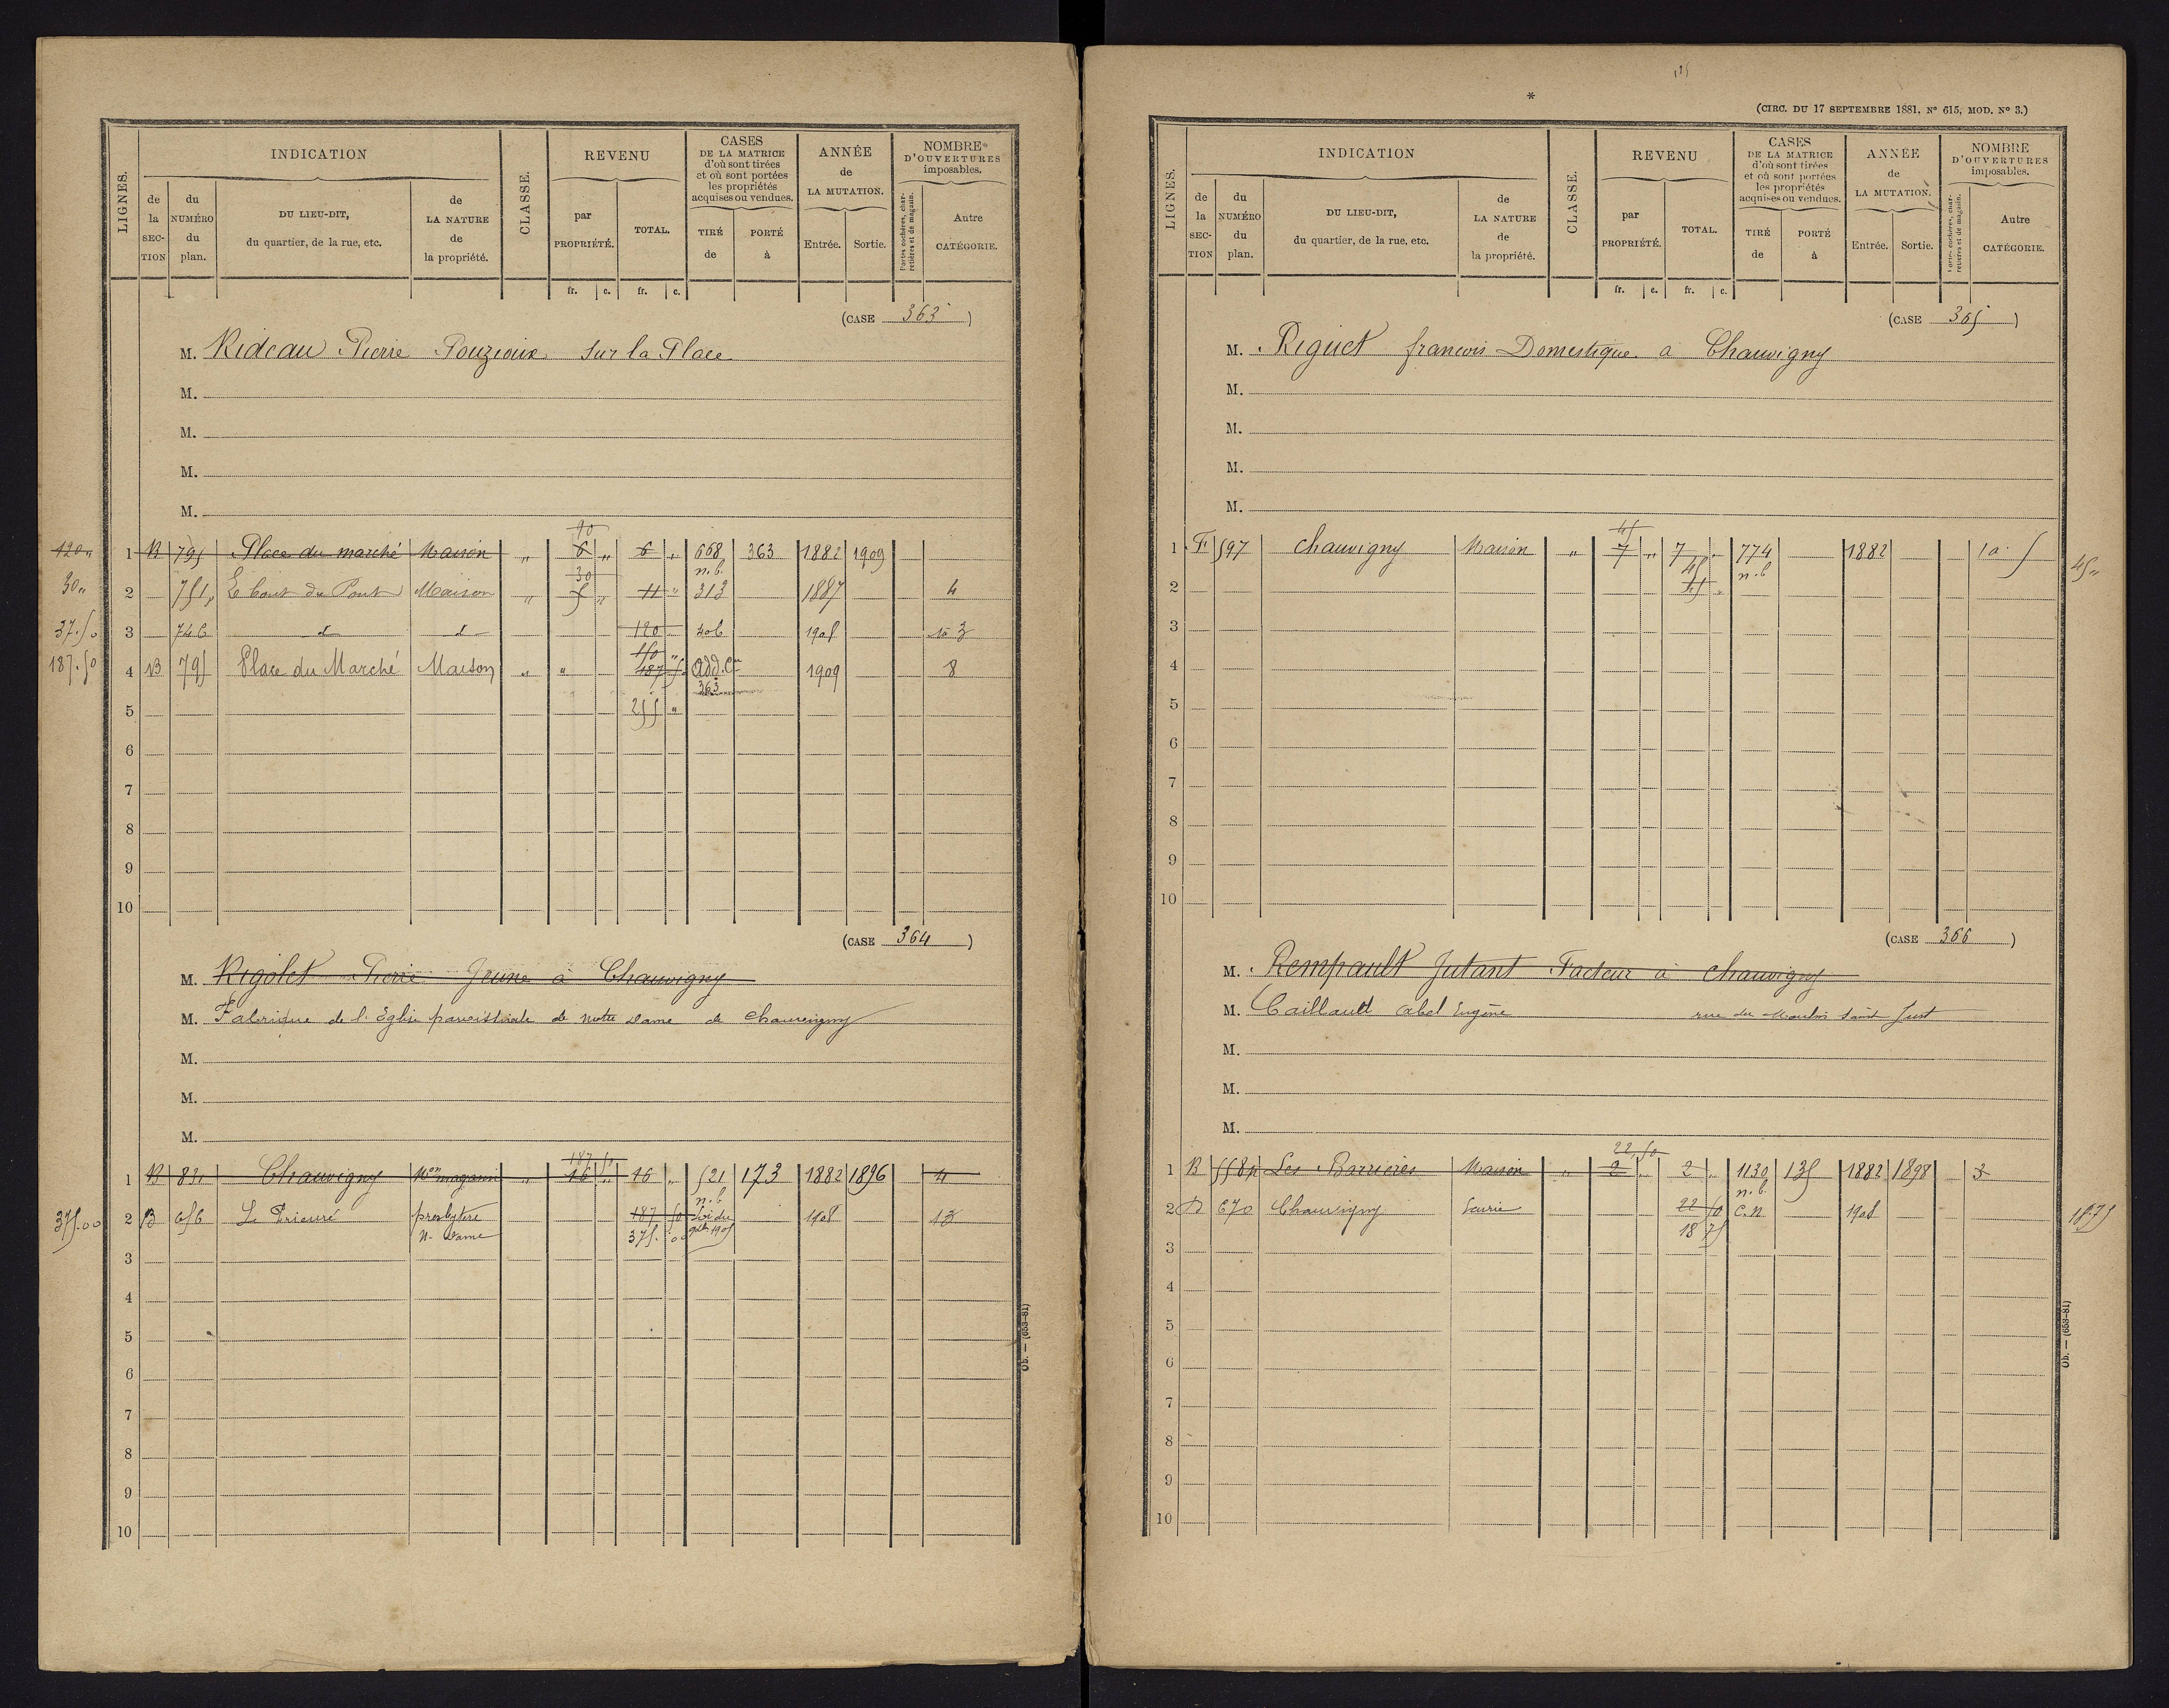 LIGNES.
INDICATION
de la SECTION
du NUMÉRO du plan.
DU LIEU-DIT, du quartier, de la rue, etc.
de LA NATURE de la propriété.
CLASSE.
REVENU
par PROPRIÉTÉ.
TOTAL.
CASES DE LA MATRICE d'où sont tirées et où sont portées les propriétés acquises ou vendues.
TIRÉ de
PORTÉ à
ANNÉE de LA MUTATION.
Entrée. Sortie.
NOMBRE D'OUVERTURES imposables.
Portes cochères, charretières et de magasin.
Autre CATÉGORIE.
fr. c. fr. c.
(CASE 363)
M. Rideau Pierre Pouzioux sur la Place
M.
M.
M.
M.
90
120 " 1 B 795 Place du marché Maison " 6 " 6 " 668 363 1882 1909
30 n.b.
30 " 2 751 Le bout du Pont Maison " 5 " 11 " 313 1887 4
37.50 3 746 d d 120 406 1908 3
150 "
187.50 4 B 795 Place du Marché Maison " " 187 5 Add. 1909 8
363
5 255 "
6
7
8
9
10
(CASE 364)
M. Rigolet Pierre Jeune à Chauvigny
M. Fabrique de l'Eglise paroissiale de notre Dame de Chauvigny
M.
M.
M.
187 50
1 B 831 Chauvigny Mon magasin " 16 " 16 " 521 173 1882 1896 4
n.b.
375.00 2 B 656 Le Prieuré presbytère N. Dame 187 50 Loi du 1908 13
375. 00 1905
3
4
5
6
7
8
9
10
Ob. — (653-81)
*
(CIRC. DU 17 SEPTEMBRE 1881, No 615, MOD. No 3.)
LIGNES.
INDICATION
de la SECTION
du NUMÉRO du plan.
DU LIEU-DIT, du quartier, de la rue, etc.
de LA NATURE de la propriété.
CLASSE.
REVENU
par PROPRIÉTÉ.
TOTAL.
CASES DE LA MATRICE d'où sont tirées et où sont portées les propriétés acquises ou vendues.
TIRÉ de
PORTÉ à
ANNÉE de LA MUTATION.
Entrée. Sortie.
NOMBRE D'OUVERTURES imposables.
Portes cochères, charretières et de magasin.
Autre CATÉGORIE.
fr. c. fr. c.
(CASE 365)
M. Riguet francois Domestique à Chauvigny
M.
M.
M.
M.
45
1 F 597 chauvigny Maison " 7 " 7 " 774 1882 5 45 "
45 n.b
2 45 "
3
4
5
6
7
8
9
10
(CASE 366)
M. Rempault Jutant Facteur à chauvigny
M. Caillault Abel Eugène rue du Moulin Saint Just
M.
M.
M.
22,50
1 B 558 Les Barrières Maison " 2 " 2 " 1130 135 1882 1898 3
n.b.
2 D 670 Chauvigny Ecurie 22 50 C.N 1908 18.75
18 75
3
4
5
6
7
8
9
10
Ob. — (653-81)